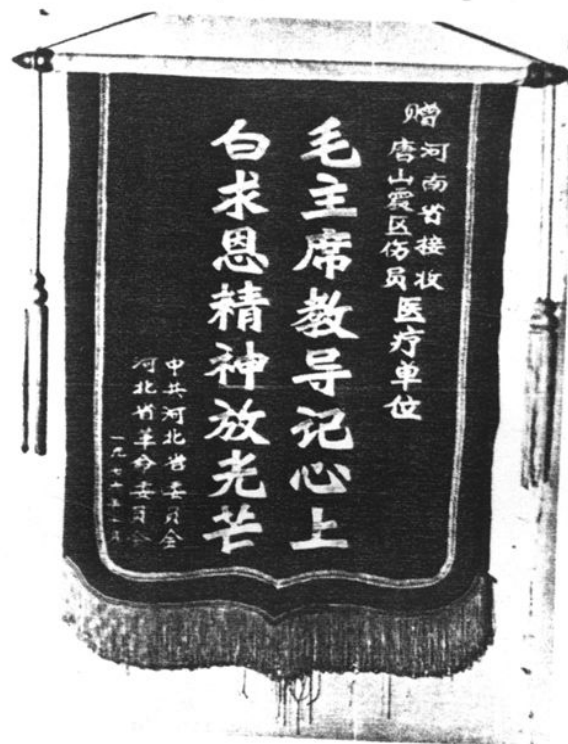 赠河南省接收唐山震区伤员医疗单位
毛主席教导记心上
白求恩精神放光芒
中共河北省委员会
河北省革命委员会